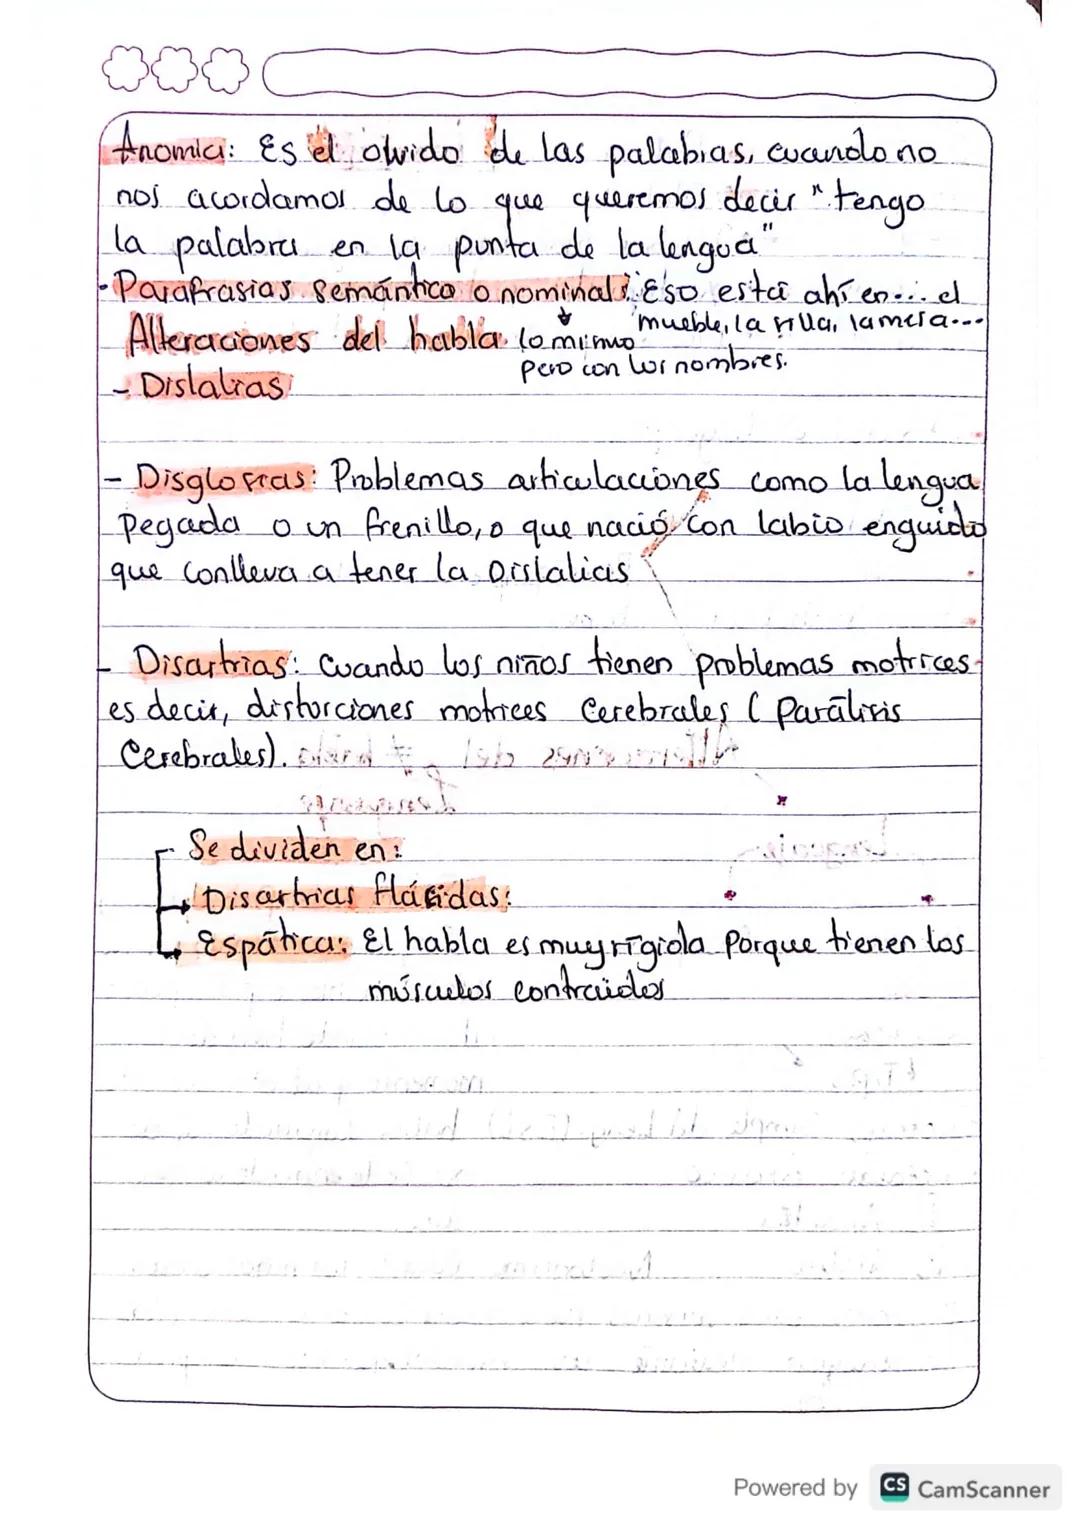 Anomia: Es el olvido de las palabras, cuando no
nos acordamos de lo que queremos decir "tengo
la palabra en la punta de la lengua"
- Parafrasias semántica o nominal: Eso está ahí en... el
mueble, la silla, la mesa...
↓
lo mismo
pero con los nombres.
Alteraciones del habla
- Dislalias
- Disglosias: Problemas articulaciones como la lengua
pegada o un frenillo, o que nació con labio enguido
que conlleva a tener la Dislalias
- Disartrias: Cuando los niños tienen problemas motrices
es decir, distorciones motrices Cerebrales (Parálisis
Cerebrales).
Se dividen en:
→ Disartrias flácidas:
→ Espática: El habla es muy rígida porque tienen los
músculos contraídos
Powered by CS CamScanner